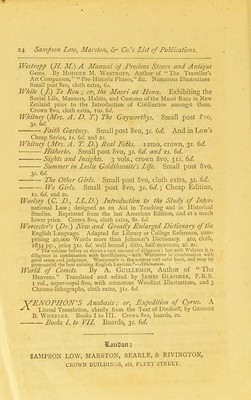 24 Sampson Low, Marston, & Co.'s List of Publications.
Westropp (H. M.) A Manual of Precious Stones and Antique
Gems. By HODDER M. WESTROPP, Author of "The Traveller's
Art Companion," "Pre-Historic Phases," &c. Numerous Illustrations
Small post 8vo, cloth extra, 6s.
White (J.) Te Rou; or, the Maori at Home. Exhibiting the
Social Life, Manners, Habits, and Customs of the Maori Race in New
Zealand prior to the Introduction of Civilization amongst them.
Crown 8vo, cloth extra, 10s. 6d.
Whitney (Mrs. A. D. T.) The Gayworthys. Small post 8vo,
3s. 6d.
—— Faith Gartney. Small post 8vo, 3s. 6d. And in Low's
Cheap Series, 1s. 6d. and 2s.
Whitney (Mrs. A. T. D.) Real Folks. 12mo, crown, 3s. 6d.
—— Hitherto. Small post 8vo, 3s. 6d. and 2s. 6d.
—— Sights and Insights. 3 vols., crown 8vo, 31s. 6d.
—— Summer in Leslie Goldthwaite's Life. Small post 8vo,
3s. 6d.
—— The Other Girls. Small post 8vo, cloth extra, 3s. 6d.
—— We Girls. Small post 8vo, 3s. 6d.; Cheap Edition,
1s. 6d. and 2s.
Woolsey (C. D., LL.D.) Introduction to the Study of Inter-
national Law; designed as an Aid in Teaching and in Historical
Studies. Reprinted from the last American Edition, and at a much
lower price. Crown 8vo, cloth extra, 8s. 6d.
Worcester's (Dr.) New and Greatly Enlarged Dictionary of the
English Language. Adapted for Library or College Reference, com-
prising 40,000 Words more than Johnson's Dictionary. 4to, cloth,
1834 pp., price 31s. 6d. well bound; ditto, half morocco, 2l. 2s.
"The volumes before us show a vast amount of diligence; but with Webster it is
diligence in combination with fancifulness,—with Worcester in combination with
good sense and judgment. Worcester's is the soberer and safer book, and may be
pronounced the best existing English Lexicon."—Athenæum.
World of Comets. By A. GUILLEMIN, Author of "The
Heavens." Translated and edited by JAMES GLAISHER, F.R.S.
1 vol., super-royal 8vo, with numerous Woodcut Illustrations, and 3
Chromo-lithographs, cloth extra, 31s. 6d.
XENOPHON'S Anabasis; or, Expedition of Cyrus. A
Literal Translation, chiefly from the Text of Dindorff, by GEORGE
B. WHEELER. Books I to III. Crown 8vo, boards, 2s.
—— Books I. to VII. Boards, 3s. 6d.
London:
SAMPSON LOW, MARSTON, SEARLE, & RIVINGTON,
CROWN BUILDINGS, 188, FLEET STREET.